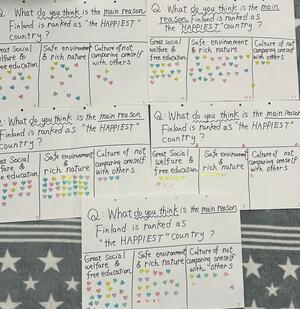 Q: What do you think is the main reason
Finland is ranked as "the HAPPIEST"
country?
Great Social welfare & free education
Safe environment & rich nature
Culture of not comparing oneself with others
Q. What do you think is the main
reason Finland is ranked as
"the HAPPIEST" country?
Great Social welfare & free education
Safe environment & rich nature
Culture of not comparing oneself with others
Q: What do you think is the main reason
Finland is ranked as "the HAPPIEST"
country?
Great Social welfare & free education
Safe environment & rich nature
Culture of not comparing oneself with others
Q: What do you think is the main reason
Finland is ranked as "the HAPPIEST"
country?
Great Social welfare & free education
Safe environment & rich nature
Culture of not comparing oneself with others
Q: What do you think is the main reason
Finland is ranked as
"the HAPPIEST" country?
Great Social welfare & free education
Safe environment & rich nature
Culture of not comparing oneself with others